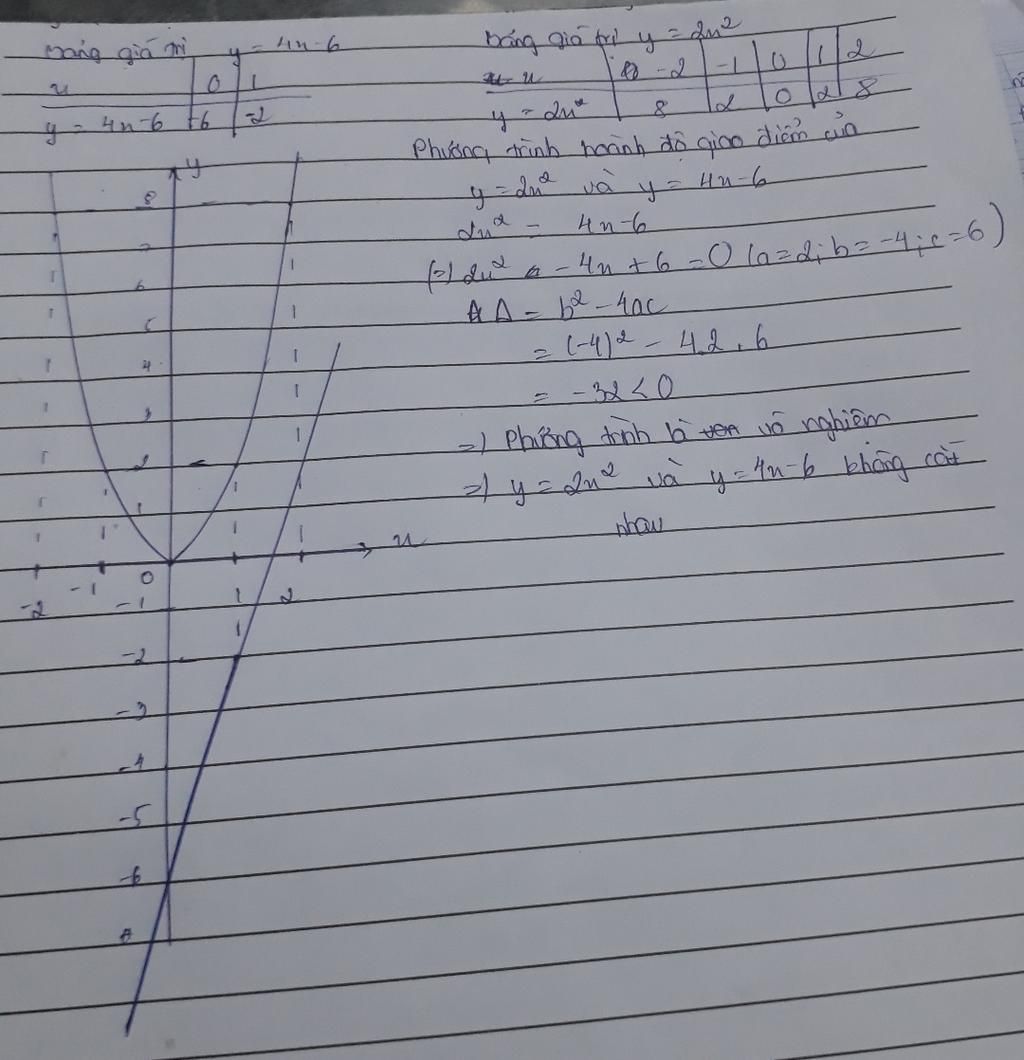 Bảng giá trị y = 4x-6
x 0 1
y = 4x-6 -6 -2
Bảng giá trị y = 2x²
x -2 -1 0 1 2
y = 2x² 8 2 0 2 8
Phương trình hoành độ giao điểm của
y = 2x² và y = 4x-6
2x² = 4x-6
(=) 2x² - 4x + 6 = 0 (a=2; b=-4; c=6)
Δ = b² - 4ac
= (-4)² - 4.2.6
= -32 < 0
=) Phương trình vô nghiệm
=) y = 2x² và y = 4x-6 không cắt
nhau
y
8
7
6
5
4
3
2
1
x
0
-2 -1 1 2
-1
-2
-3
-4
-5
-6